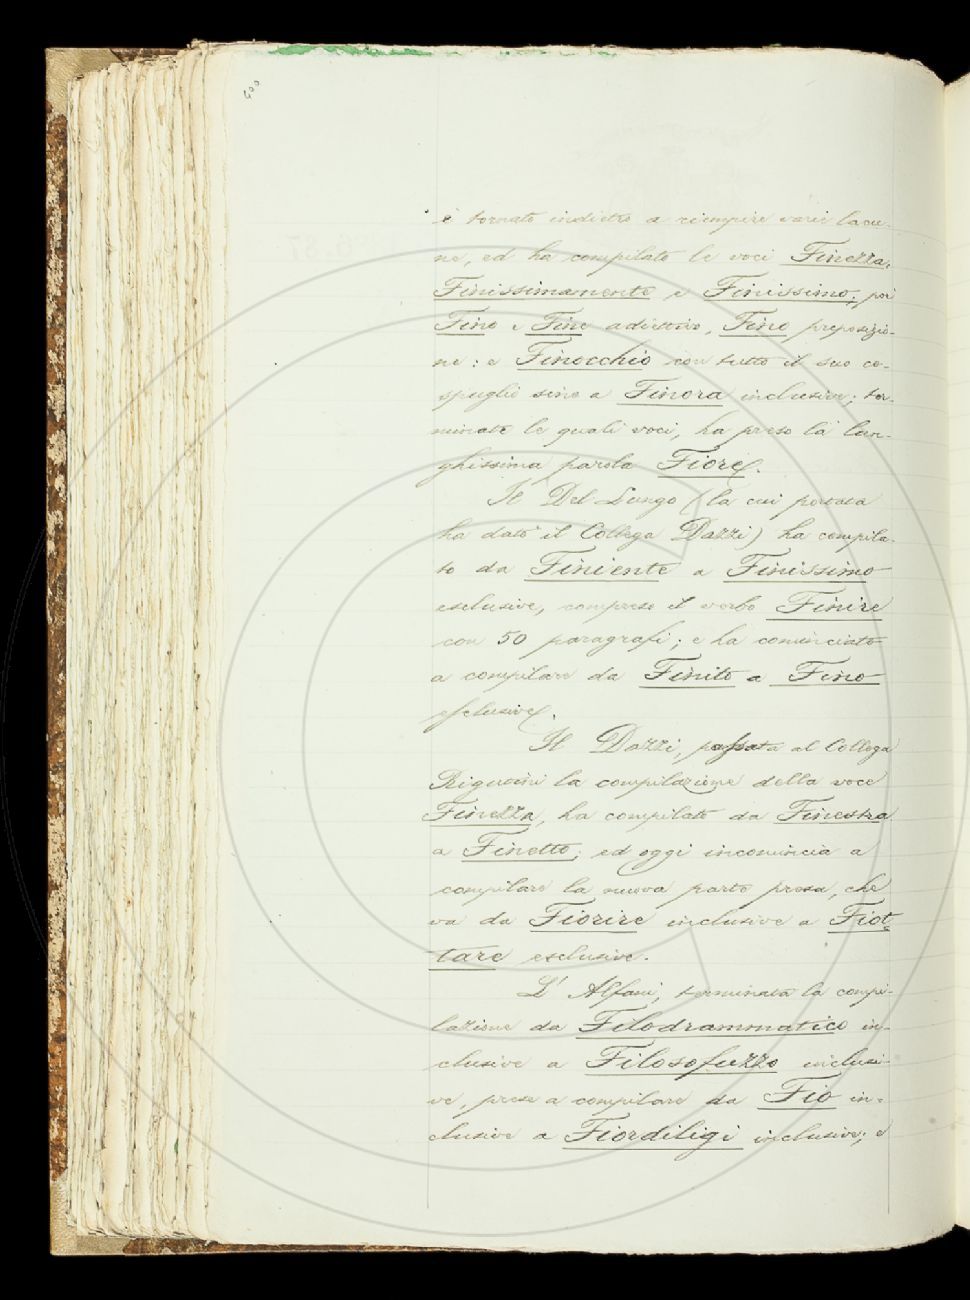 400
è tornato indietro a riempire varie lacu-
ne, ed ha compilato le voci Finezza,
Finissimamente e Finissimo; poi
Fino e Fine adiettivo, Fino preposizio-
ne: e Finocchio con tutto il suo ce-
spuglio sino a Finora inclusive; ter-
minate le quali voci, ha preso la lun-
ghissima parola Fiore.
Il Del Lungo (la cui portata
ha dato il Collega Dazzi) ha compila-
to da Finiente a Finissimo
esclusive, compreso il verbo Finire
con 50 paragrafi; e ha cominciato
a compilare da Finito a Fino
esclusive.
Il Dazzi, passata al Collega
Rigutini la compilazione della voce
Finezza, ha compilato da Finestra
a Finetto; ed oggi incomincia a
compilare la nuova parte presa, che
va da Fiorire inclusive a Fiot-
tare esclusive.
L'Alfani, terminata la compi-
lazione da Filodrammatico in-
clusive a Filosofuzzo inclusi-
ve, prese a compilare da Fio in-
clusive a Fiordiligi inclusive; e